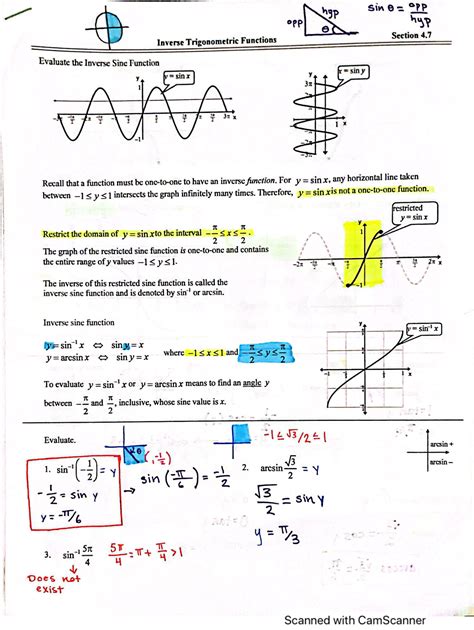 hyp
opp
θ
sin θ = opp/hyp
Inverse Trigonometric Functions
Section 4.7
Evaluate the Inverse Sine Function
y = sin x
x = sin y
Recall that a function must be one-to-one to have an inverse function. For y = sin x, any horizontal line taken
between −1 ≤ y ≤ 1 intersects the graph infinitely many times. Therefore, y = sin x is not a one-to-one function.
restricted
y = sin x
Restrict the domain of y = sin x to the interval −π/2 ≤ x ≤ π/2.
The graph of the restricted sine function is one-to-one and contains
the entire range of y values −1 ≤ y ≤ 1.
The inverse of this restricted sine function is called the
inverse sine function and is denoted by sin⁻¹ or arcsin.
Inverse sine function
y = sin⁻¹ x
y = sin⁻¹ x ⇔ sin y = x
y = arcsin x ⇔ sin y = x
where −1 ≤ x ≤ 1 and −π/2 ≤ y ≤ π/2
To evaluate y = sin⁻¹ x or y = arcsin x means to find an angle y
between −π/2 and π/2, inclusive, whose sine value is x.
Evaluate.
−1 ≤ √3/2 ≤ 1
arcsin +
arcsin −
1. sin⁻¹(−1/2) = y
−1/2 = sin y
y = −π/6
→ sin(−π/6) = −1/2
2. arcsin √3/2 = y
√3/2 = sin y
y = π/3
3. sin⁻¹ 5π/4
5π/4 = π + π/4 > 1
Does not
exist
Scanned with CamScanner